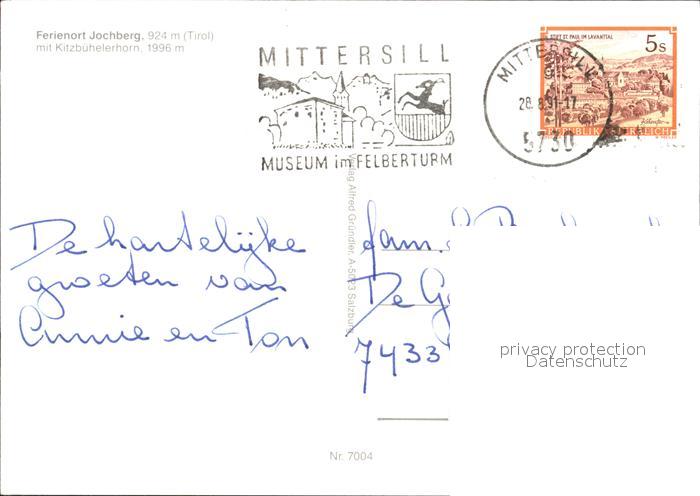 Ferienort Jochberg, 924 m (Tirol)
mit Kitzbühelerhorn, 1996 m
MITTERSILL
MUSEUM im FELBERTURM
MITTERSILL
28.8.91-17
5730
STIFT ST. PAUL IM LAVANTTAL
5s
REPUBLIK ÖSTERREICH
Verlag Alfred Gründler, A-5023 Salzburg
De hartelijke
groeten van
Annie en Ton
fam.
De
7433
privacy protection
Datenschutz
Nr. 7004